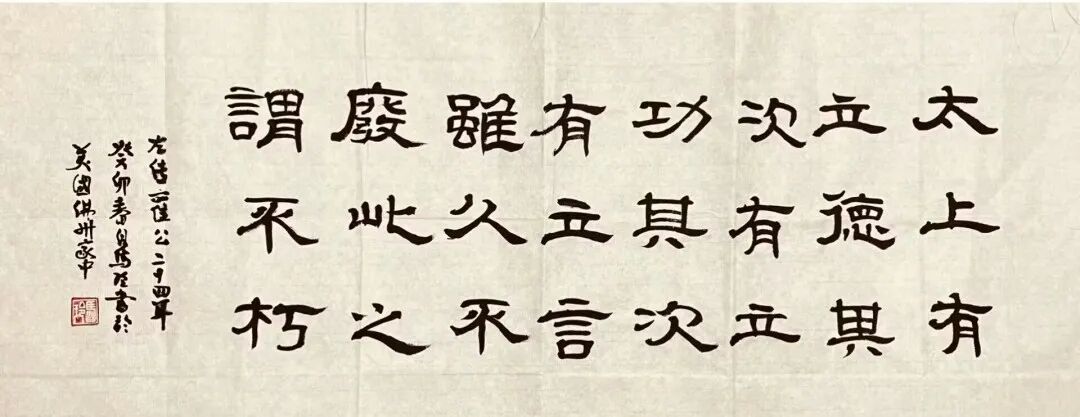 太上有
立德其
次有立
功其次
有立言
雖久不
廢此之
謂不朽
左传襄公二十四年
癸卯春馬書於
美國佛州家中